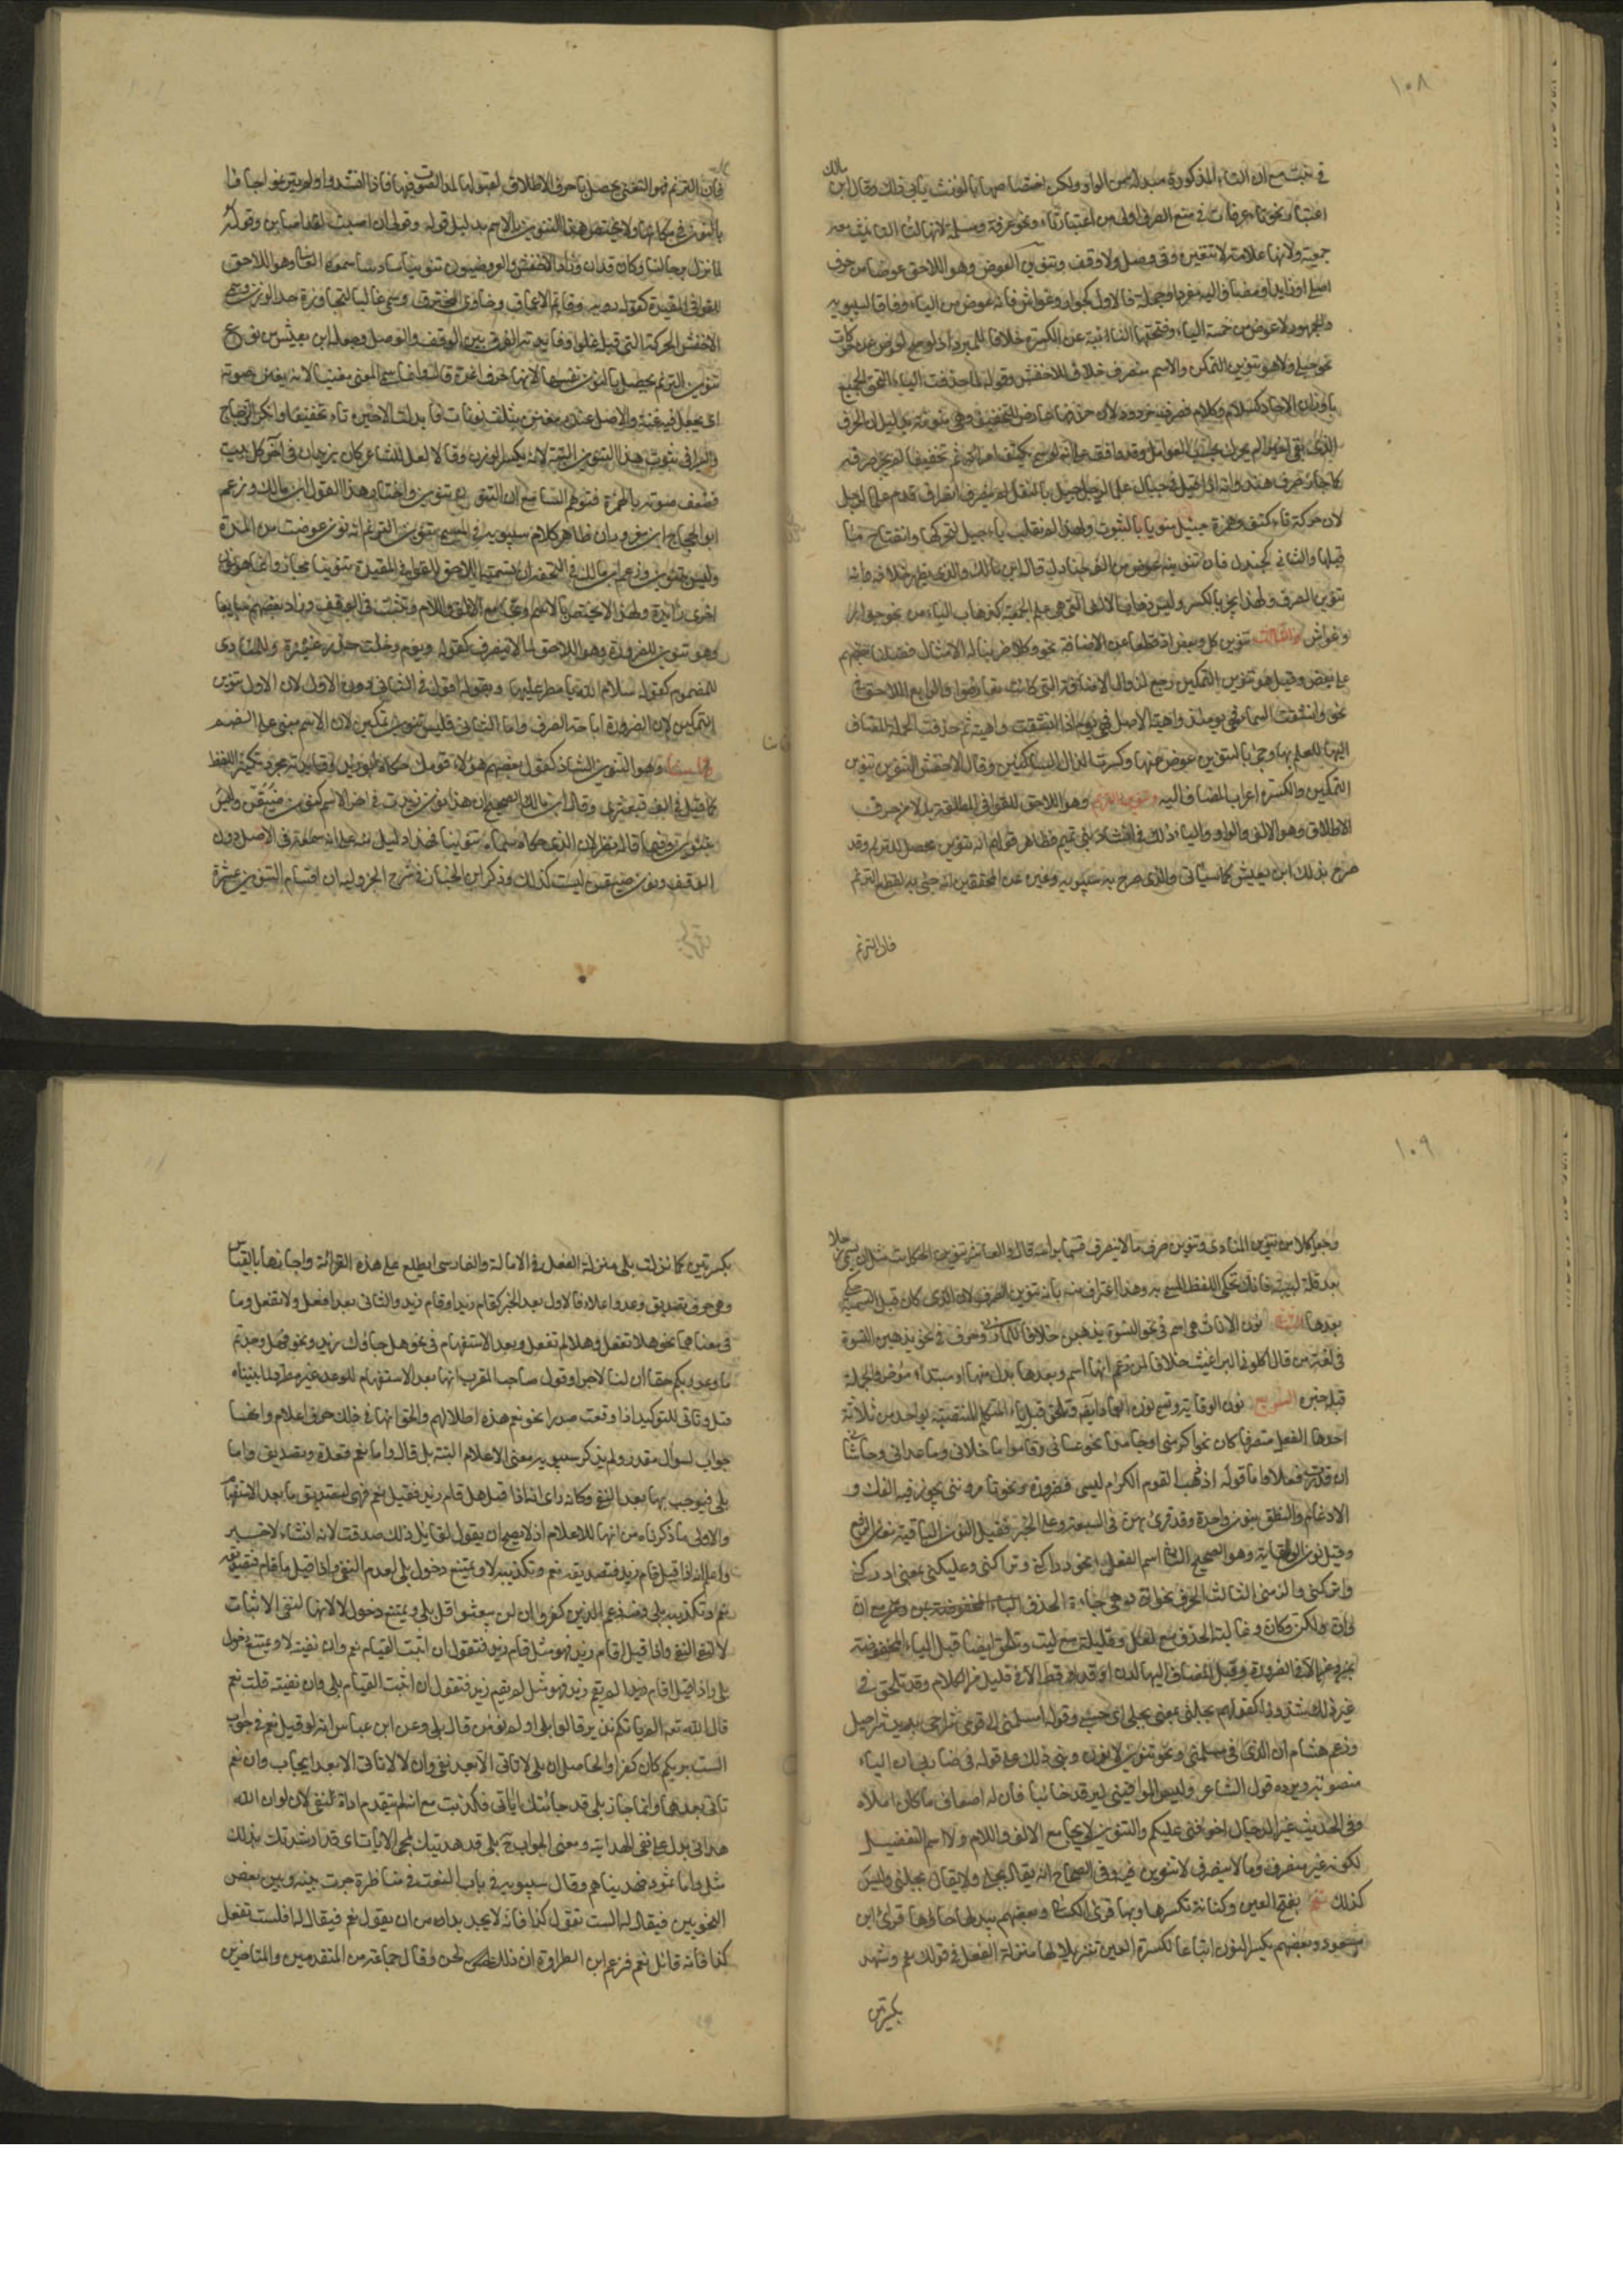 ١٠٨
في بنت مع ان التاء المذكورة مبدلة من الواو ولكن اختصاصها بالمؤنث يأبى ذلك وقال ابن مالك
اعتبار نحو تاء عرفات في منع الصرف اولى من اعتبار تاء نحو عرفة ومسلمة لانها لتأنيث معه
جمعية ولانها علامة لا تتغير في وصل ولا وقف وتنوين العوض وهو اللاحق عوضا من حرف
اصلي او زايد او مضاف اليه مفردا وجملة فالاول كجوار وغواش فانه عوض من الياء وفاقا لسيبويه
والجمهور لا عوض من ضمة الياء وفتحتها النائبة عن الكسرة خلافا للمبرد اذ لو صح لعوض عن حركات
نحو حبلى ولا هو تنوين التمكين والاسم منصرف خلافا للاخفش وقوله لما حذفت الياء التحق الجمع
باوزان الاحاد كسلام وكلام فصرف مردود لان حذفها عارض للتخفيف وهي منوية بدليل ان الحرف
الذي بقي اخيرا لم يحرك بحسب العوامل وقد وافق على انه لو سمي بكتف امرأة ثم سكن تخفيفا لم يجز صرفه
كما جاز صرف هند وانه اذا قيل في جيأل علم الرجل جيل بالنقل لم ينصرف انصراف قدم علما لرجل
لان حركة تاء كتف وهمزة جيأل منويا بالثبوت ولهذا لم تقلب ياء جيل لتحركها وانفتاح ما
قبلها والثاني كجندل فان تنوينه عوض من الف جنادل قاله ابن مالك والذي يظهر خلافه وانه
تنوين الصرف ولهذا يجر بالكسر وليس ذهاب الالف التي هي علم الجمعية كذهاب الياء من نحو جوار
وغواش والثالث تنوين كل وبعض اذا قطعا عن الاضافة نحو وكلا ضربنا له الامثال فضلنا بعضهم
على بعض وقيل هو تنوين التمكين رجع لزوال الاضافة التي كانت تعارضه والرابع اللاحق لاذ في
نحو وانشقت السماء فهي يومئذ واهية الاصل فهي يوم اذا انشقت واهية ثم حذفت الجملة المضاف
اليها للعلم بها وجئ بالتنوين عوضا عنها وكسرت الذال للساكنين وقال الاخفش التنوين تنوين
التمكين والكسرة اعراب المضاف اليه وتنوين الترنم وهو اللاحق للقوافي المطلقة بدلا من حرف
الاطلاق وهو الالف والواو والياء وذلك في انشاد بني تميم فظاهر قولهم انه تنوين محصل للترنم وقد
صرح بذلك ابن يعيش كما سيأتي والذي صرح به سيبويه وغيره من المحققين انه جئ به لقطع الترنم
فان الترنم
فان الترنم وهو التغني يحصل باحرف الاطلاق لقبولها لمد الصوت فيها فاذا انشدوا ولم يترنموا جاؤا
بالنون في مكانها ولا يختص هذا التنوين بالاسم بدليل قوله وقولي ان اصبت لقد اصابن وقوله
لما تزل برحالنا وكان قدن وزاد الاخفش والعروضيون تنوينا سادسا سموه الغالي وهو اللاحق
للقوافي المقيدة كقوله رؤبه وقاتم الاعماق خاوي المخترقن وسمي غاليا لتجاوزه حد الوزن وسمى
الاخفش الحركة التي قبله غلوا وفائدته الفرق بين الوقف والوصل وجعله ابن يعيش من نوع
تنوين الترنم زاعما ان الترنم يحصل بالنون نفسها لانها حرف اغن قال وانما سمي المغني مغنيا لانه يغنن صوته
اي يجعل فيه غنة والاصل عنده مغنن بثلاث نونات فابدلت الاخيرة ياء تخفيفا وانكر الزجاج
والسيرافي ثبوت هذا التنوين البتة لانه يكسر الوزن وقالا لعل الشاعر كان يزيد ان في آخر كل بيت
فضعف صوته بالهمزة فتوهم السامع ان النون تنوين واختار هذا القول ابن مالك وزعم
ابو الحجاج ابن معزوز ان ظاهر كلام سيبويه في المسمى تنوين الترنم انه نون عوضت من المدة
وليس بتنوين وزعم ابن مالك في التحفة ان تسمية اللاحق للقوافي المقيدة تنوينا مجاز وانما هو نون
اخرى زائدة ولهذا لا يختص بالاسم ويجامع الالف واللام ويثبت في الوقف وزاد بعضهم سابعا
وهو تنوين الضرورة وهو اللاحق لما لا ينصرف كقوله ويوم دخلت الخدر خدر عنيزة وللمنادى
المضموم كقوله سلام الله يا مطر عليها وبقوله اقول في الثاني دون الاول لان الاول تنوين
التمكين لان الضرورة اباحت الصرف واما الثاني فليس تنوين تمكين لان الاسم مبني على الضم
وثامنا وهو التنوين الشاذ كقول بعضهم هؤلاء قومك حكاه ابو زيد وفائدته مجرد تكثير اللفظ
كما قيل في الف قبعثرى وقال ابن مالك الصحيح ان هذا نون زيدت في اخر الاسم كنون ضيفن وليس
بتنوين وفيما قاله نظر لان الذي حكاه سماه تنوينا فهذا دليل منه على انه سمعه في الوصل دون
الوقف ونون ضيفن ليست كذلك وذكر ابن الخباز في شرح الجزولية ان اقسام التنوين عشرة
١٠٩
وجعل كلا من تنوين المنادى وتنوين صرف ما لا ينصرف قسما برأسه قال والعاشر تنوين الحكاية مثل ان يسمى رجلا
بعاقلة لبيبة فانك تحكي اللفظ المسمى به وهذا اعتراف منه بانه تنوين الصرف لان الذي كان قبل التسمية حكي
بعدها الثالث نون الاناث هي اسم في نحو النسوة يذهبن خلافا للمازني وحرف في نحو يذهبن النسوة
في لغة من قال اكلوني البراغيث خلافا لمن زعم انها اسم وبعدها بدل منها او مبتداء مؤخر والجملة
قبله خبره الرابع نون الوقاية وتسمى نون العماد ايضا وتلحق قبل ياء المتكلم المنتصبة بواحد من ثلاثة
احدها الفعل متصرفا كان نحو اكرمني او جامدا نحو عساني وقاموا ما خلاني وما عداني وحاشاني
ان قدرت فعلا واما قوله اذ ذهب القوم الكرام ليسي فضرورة ونحو تأمرونني يجوز فيه الفك و
الادغام والنطق بنون واحدة وقد قرئ بهن في السبعة وعلى الاخيرة فقيل النون الباقية نون الرفع
وقيل نون الوقاية وهو الصحيح الثاني اسم الفعل نحو دراكني وتراكني وعليكني بمعنى ادركني
واتركني والزمني الثالث الحرف نحو انني وهي جائزة الحذف مع ان
وان ولكن وكان وغالبة الحذف مع لعل وقليلة مع ليت وتلحق ايضا قبل الياء المخفوضة
بمن وعن الا في الضرورة وقبل المضاف اليها لدن او قد او قط الا في قليل من الكلام وقد تلحق في
غير ذلك شذوذا كقولهم بجلني بمعنى بجلي اي حسبي وقوله امسلمني الى قومي شراحي يريد شراحيل
وزعم هشام ان الذي في مسلمني ونحوه تنوين لا نون وبنى ذلك على قوله في ضاربني ان الياء
منصوبة ويرده قول الشاعر وليس الموافيني ليرفد خائبا فان له اضعاف ما كان املا
وفي الحديث غير الدجال اخوفني عليكم والتنوين لا يجامع الالف واللام ولا اسم التفضيل
لكونه غير منصرف وما لا ينصرف لا تنوين فيه وفي الصحاح انه يقال بجلي ولا يقال بجلني وليس
كذلك نعم بفتح العين وكنانة تكسرها وبها قرئ الكسائي وبعضهم يبدلها حاء وبها قرئ ابن
مسعود وبعضهم يكسر النون اتباعا لكسرة العين تنزيلا لها منزلة الفعل في قولك نعم وشهد
بكسرتين
بكسرتين كما نزلت بلى منزلة الفعل في الامالة والفارسي لم يطلع على هذه القرائة واجازها بالقياس
وهي حرف تصديق ووعد واعلام فالاول بعد الخبر كقام زيد وما قام زيد والثاني بعد افعل ولا تفعل وما
في معناهما نحو هلا تفعل وهلا لم تفعل وبعد الاستفهام في نحو هل جاءك زيد ونحو فهل وجدتم
ما وعد ربكم حقا ان لنا لاجرا وقول صاحب المقرب انها بعد الاستفهام للوعد غير مطرد لما بيناه
قبل وتأتي للتوكيد اذا وقعت صدرا نحو نعم هذه اطلالهم والحق انها في ذلك حرف اعلام وانها
جواب لسؤال مقدر ولم يذكر سيبويه معنى الاعلام البتة بل قال واما نعم فعدة وتصديق واما
بلى فيوجب بها بعد النفي وكانه رأى انه اذا قيل هل قام زيد فقيل نعم فهي لتصديق ما بعد الاستفهام
والاولى ما ذكرناه من انها للاعلام اذ لا يصح ان يقول لقائل ذلك صدقت لانه انشاء لا خبر
واعلم انه اذا قيل قام زيد فتصديقه نعم وتكذيبه لا ويمتنع دخول بلى لعدم النفي واذا قيل ما قام فتصديقه
نعم وتكذيبه بلى ومنه زعم الذين كفروا ان لن يبعثوا قل بلى ويمتنع دخول لا لانها لنفي الاثبات
لا لنفي النفي واذا قيل اقام زيد فهو مثل قام زيد فتقول ان اثبت القيام نعم وان نفيته لا ويمتنع دخول
بلى واذا قيل الم يقم زيد فهو مثل لم يقم زيد فتقول ان اثبت القيام بلى وان نفيته قلت نعم
قال الله تعه الم يأتكم نذير قالوا بلى اولم تؤمن قال بلى وعن ابن عباس انه لو قيل نعم في جواب
الست بربكم كان كفرا والحاصل ان بلى لا تاتي الا بعد نفي وان لا لا تاتي الا بعد ايجاب وان نعم
تأتي بعدهما وانما جاز بلى قد جائتك اياتي فكذبت مع انه لم يتقدم اداة النفي لان لو ان الله
هداني يدل على نفي الهداية ومعنى الجواب ح بلى قد هديتك بمجئ الايات اي قد ارشدتك بذلك
مثل واما ثمود فهديناهم وقال سيبويه في باب النعت في مناظرة جرت بينه وبين بعض
النحويين فيقال له الست تقول كذا فانه لا يجد بدا من ان يقول نعم فيقال له افلست تفعل
كذا فانه قائل نعم فزعم ابن الطراوة ان ذلك لحن وقال جماعة من المتقدمين والمتاخرين